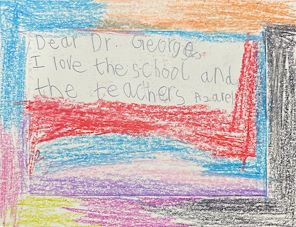 Dear Dr. George
I love the school and
the teachers